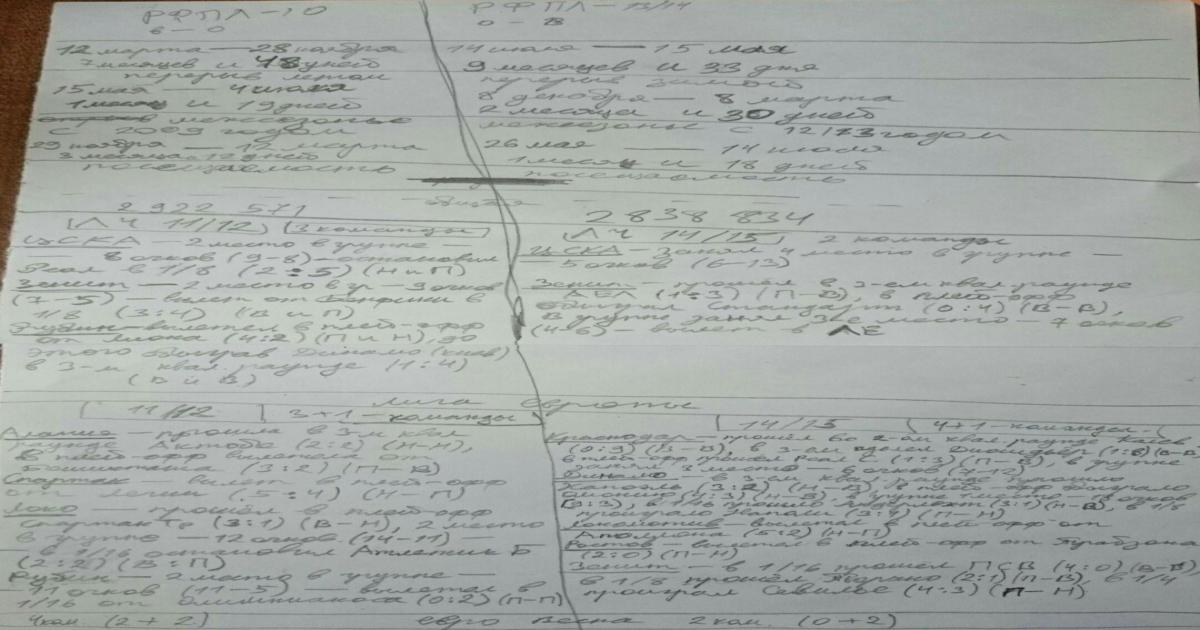 РФПЛ - 10
в - о
12 марта - 28 ноября
7 месяцев и 18 дней
перерыв летом
15 мая - 4 июля
1 месяц и 19 дней
межсезонье
с 2009 годом
29 ноября - 12 марта
3 месяца 12 дней
посещаемость
2 922 571
ЛЧ 11/12 (3 команды)
ЦСКА - 2 место в группе -
8 очков (9-8) - остановил
Реал в 1/8 (2:5) (Н и П)
Зенит - 2 место в гр - 9 очков
(7-5) - вылет от Бенфики в
1/8 (3:4) (В и П)
Рубин - вылетел в плей-офф
от Лиона (4:2) (П и Н), до
этого обыграв Динамо (Киев)
в 3-м квал. раунде (1:4)
(В и В)
РФПЛ - 13/14
о - в
14 июля - 15 мая
9 месяцев и 33 дня
перерыв зимой
8 декабря - 8 марта
2 месяца и 30 дней
межсезонье с 12/13 годом
26 мая - 14 июля
1 месяц и 18 дней
посещаемость
общая
2 838 834
ЛЧ 14/15, 2 команды
ЦСКА - занял 4 место в группе -
5 очков (6-13)
Зенит - прошёл в 3-ем квал раунде
АЕЛ (1:3) (П-В), в плей-офф
обыграл Стандарт (0:4) (В-В),
в группе занял 3 место - 7 очков
(4-6) - вылет в ЛЕ
лига европы
11/12 3+1 - команды
Алания - прошла в 3-м квал
раунде Актобе (2:2) (Н-Н),
в плей-офф вылетел от
Бешикташа (3:2) (П-В)
Спартак - вылет в плей-офф
от Легии (5:4) (Н-П)
Локо - прошёл в плей-офф
Спартак Тр (3:1) (В-Н), 2 место
в группе - 12 очков (14-11) -
в 1/16 остановил Атлетик Б
(2:2) (В:П)
Рубин - 2 место в группе -
11 очков (11-5) - вылетел в
1/16 от Олимпиакоса (0:2) (П-П)
4 ком. (2+2)
14/15 4+1 - команды
Краснодар - прошёл во 2-ом квал раунде
(0:9) (В-В), в 3-ем прошёл Диошдьёр (1:8) (В-В)
в плей-офф прошёл Реал С (1:3) (П-В), в группе
занял 3 место - 6 очков (7-12)
Динамо - в 3-ем квал раунде прошло
Хапоэль (3:2) (Н-В), в плей-офф обыграло
Омонию (4:3) (Н-В), в группе 1 место - 18 очков
(9:3), в 1/16 прошло Андерлехт (3:1) (Н-В), в 1/8
проиграло Наполи (3:1) (П-Н)
Локомотив - вылетел в плей-офф от
Аполлона (5:2) (Н-П)
Ростов - вылетел в плей-офф от Трабзона
(2:0) (П-Н)
Зенит - в 1/16 прошёл ПСВ (4:0) (В-В)
в 1/8 прошёл Торино (2:1) (П-В), в 1/4
проиграл Севилье (4:3) (П-Н)
евро весна
2 ком. (0+2)